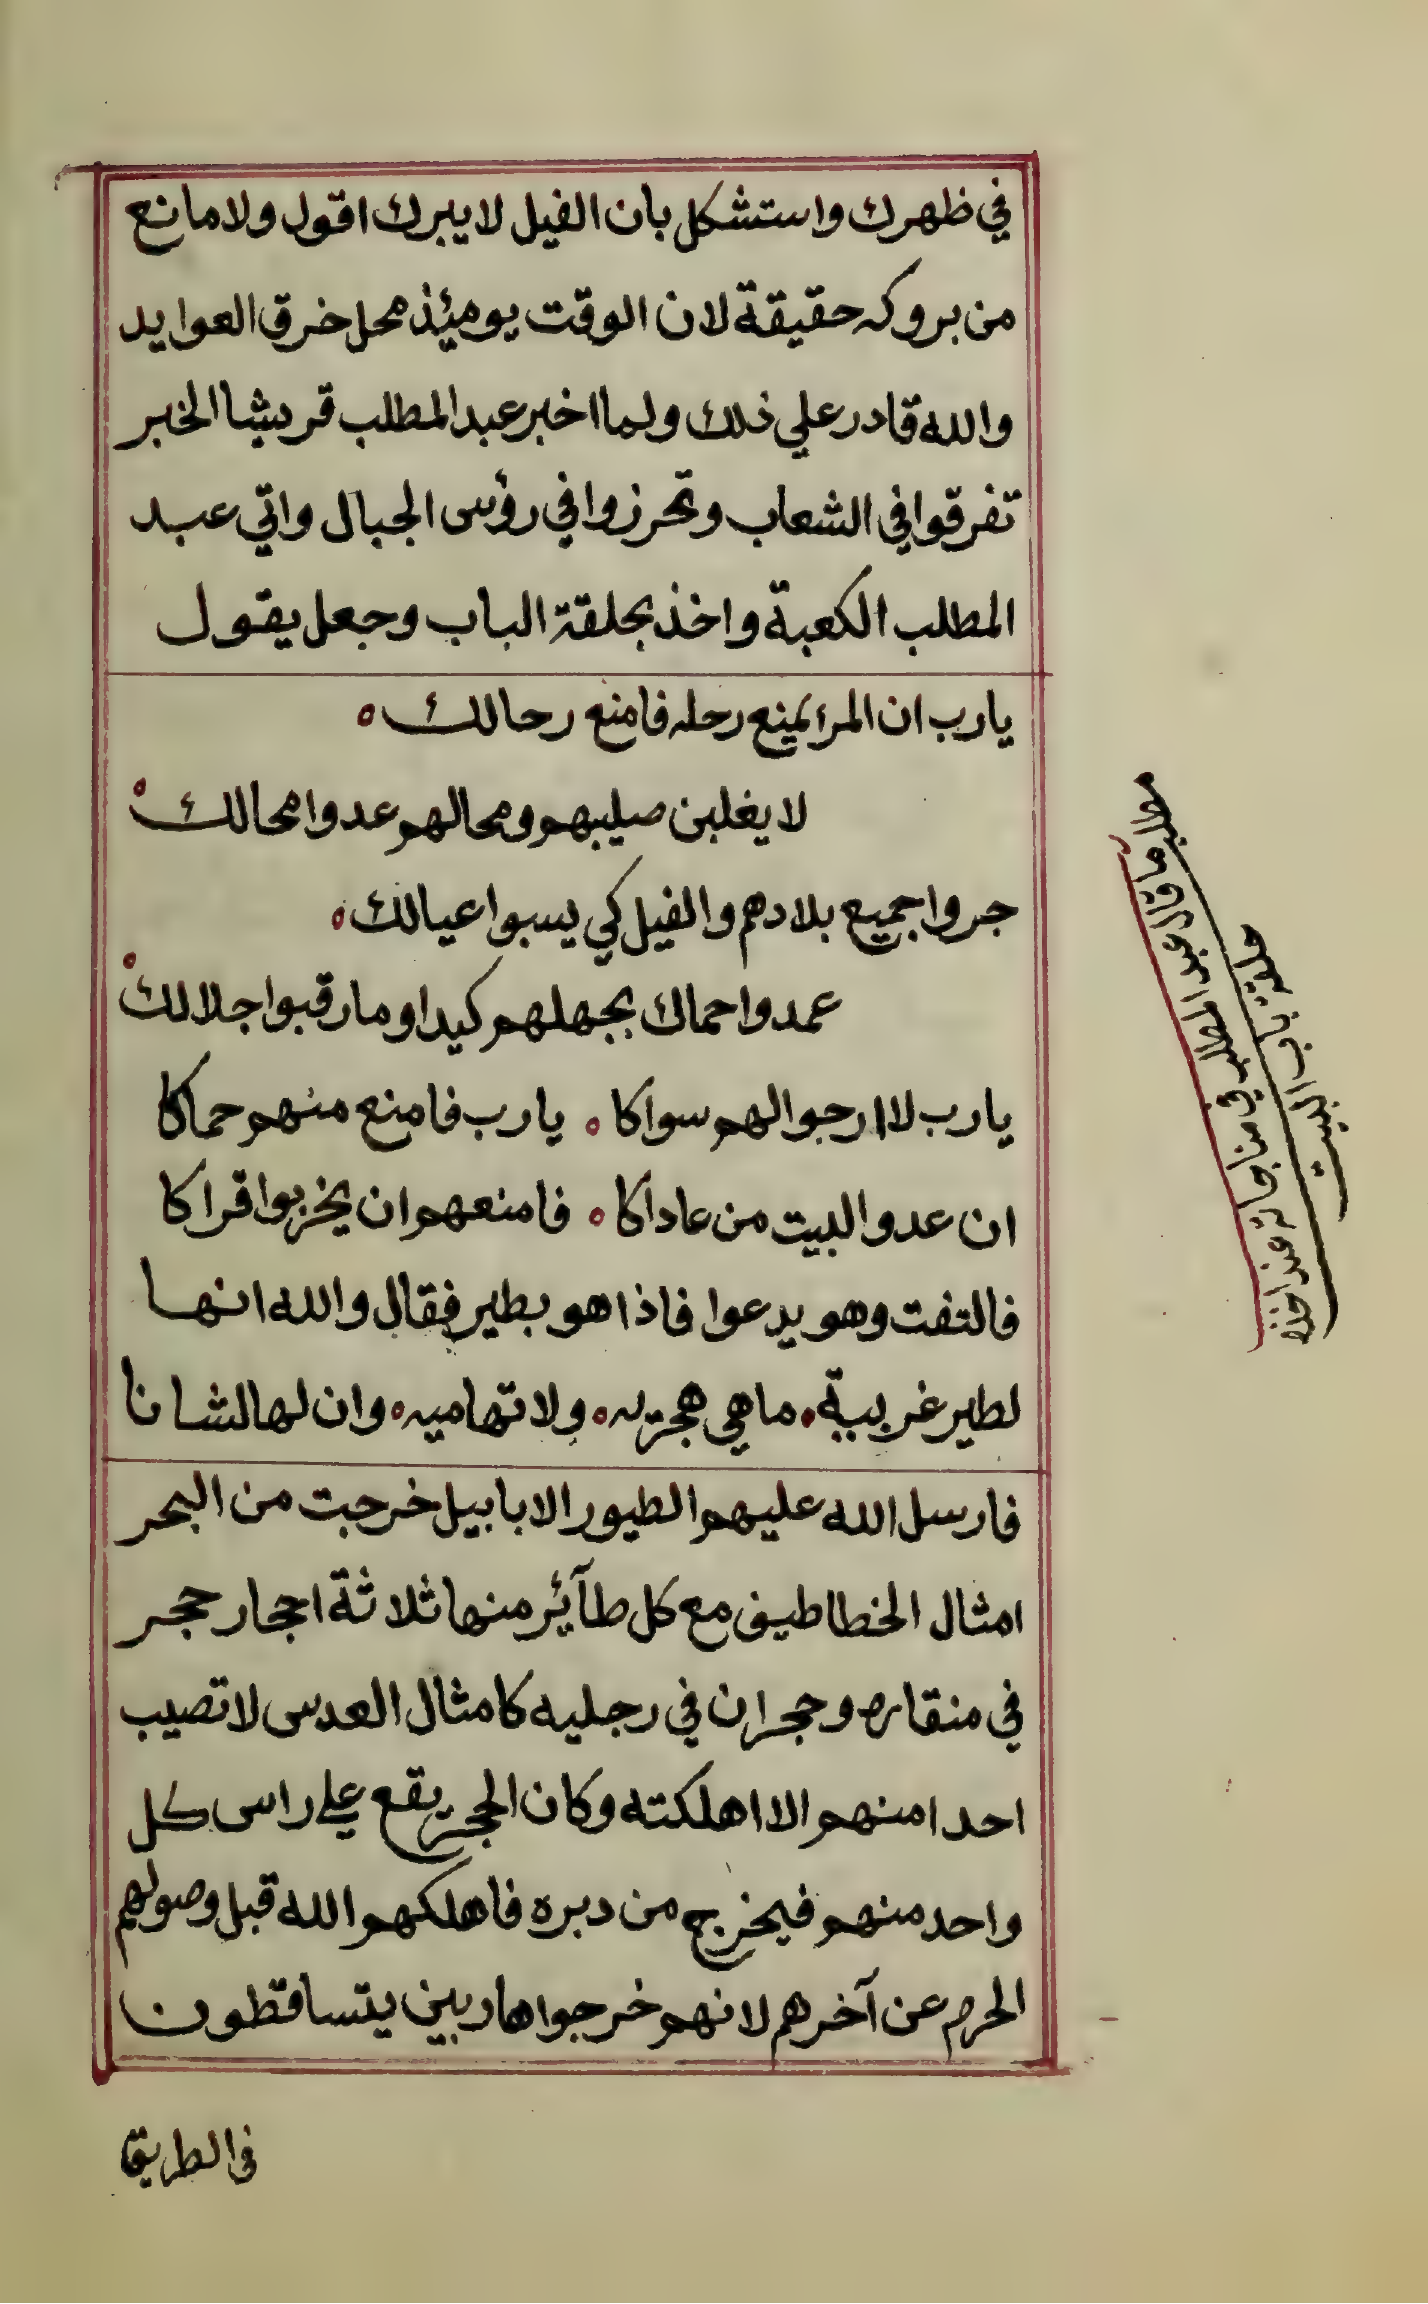 في ظهرك واستشكل بان الفيل لا يبرك اقول ولا مانع
من بروكه حقيقة لان الوقت يومئذ محل خرق العوايد
والله قادر علي ذلك ولما اخبر عبد المطلب قريشا الخبر
تفرقوا في الشعاب وتحرزوا في رؤس الجبال واتي عبد
المطلب الكعبة واخذ بحلقة الباب وجعل يقول
يارب ان المرء يمنع رحله فامنع رحالك
لا يغلبن صليبهم ومحالهم عدوا محالك
جروا جميع بلادهم والفيل كي يسبوا عيالك
عمدوا حماك بجهلهم كيدا وما رقبوا جلالك
يارب لا ارجوا لهم سواكا يارب فامنع منهم حماكا
ان عدو البيت من عاداكا فامنعهم ان يخربوا قراكا
فالتفت وهو يدعوا فاذا هو بطير فقال والله انها
لطير غريبة ما هي هجريه ولا تهاميه وان لها لشانا
فارسل الله عليهم الطيور الابابيل خرجت من البحر
امثال الخطاطيف مع كل طآئر منها ثلاثة احجار حجر
في منقاره وحجران في رجليه كامثال العدس لا تصيب
احدا منهم الا اهلكته وكان الحجر يقع علي راس كل
واحد منهم فيخرج من دبره فاهلكهم الله قبل وصولهم
الحرم عن آخرهم لانهم خرجوا هاربين يتساقطون
في الطريق
مطلب ما قال عبد المطلب في مناجاته عند اخذه
حلقة باب البيت